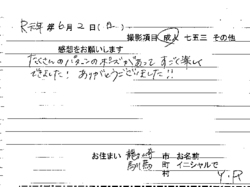 R元年 6月2日(日)
撮影項目 成人 七五三 その他
感想をお願いします
たくさんのパターンのポーズがあってすごく楽しく
できました! ありがとうございました!!
お住まい 市 お名前
町 イニシャルで
村 Y.R